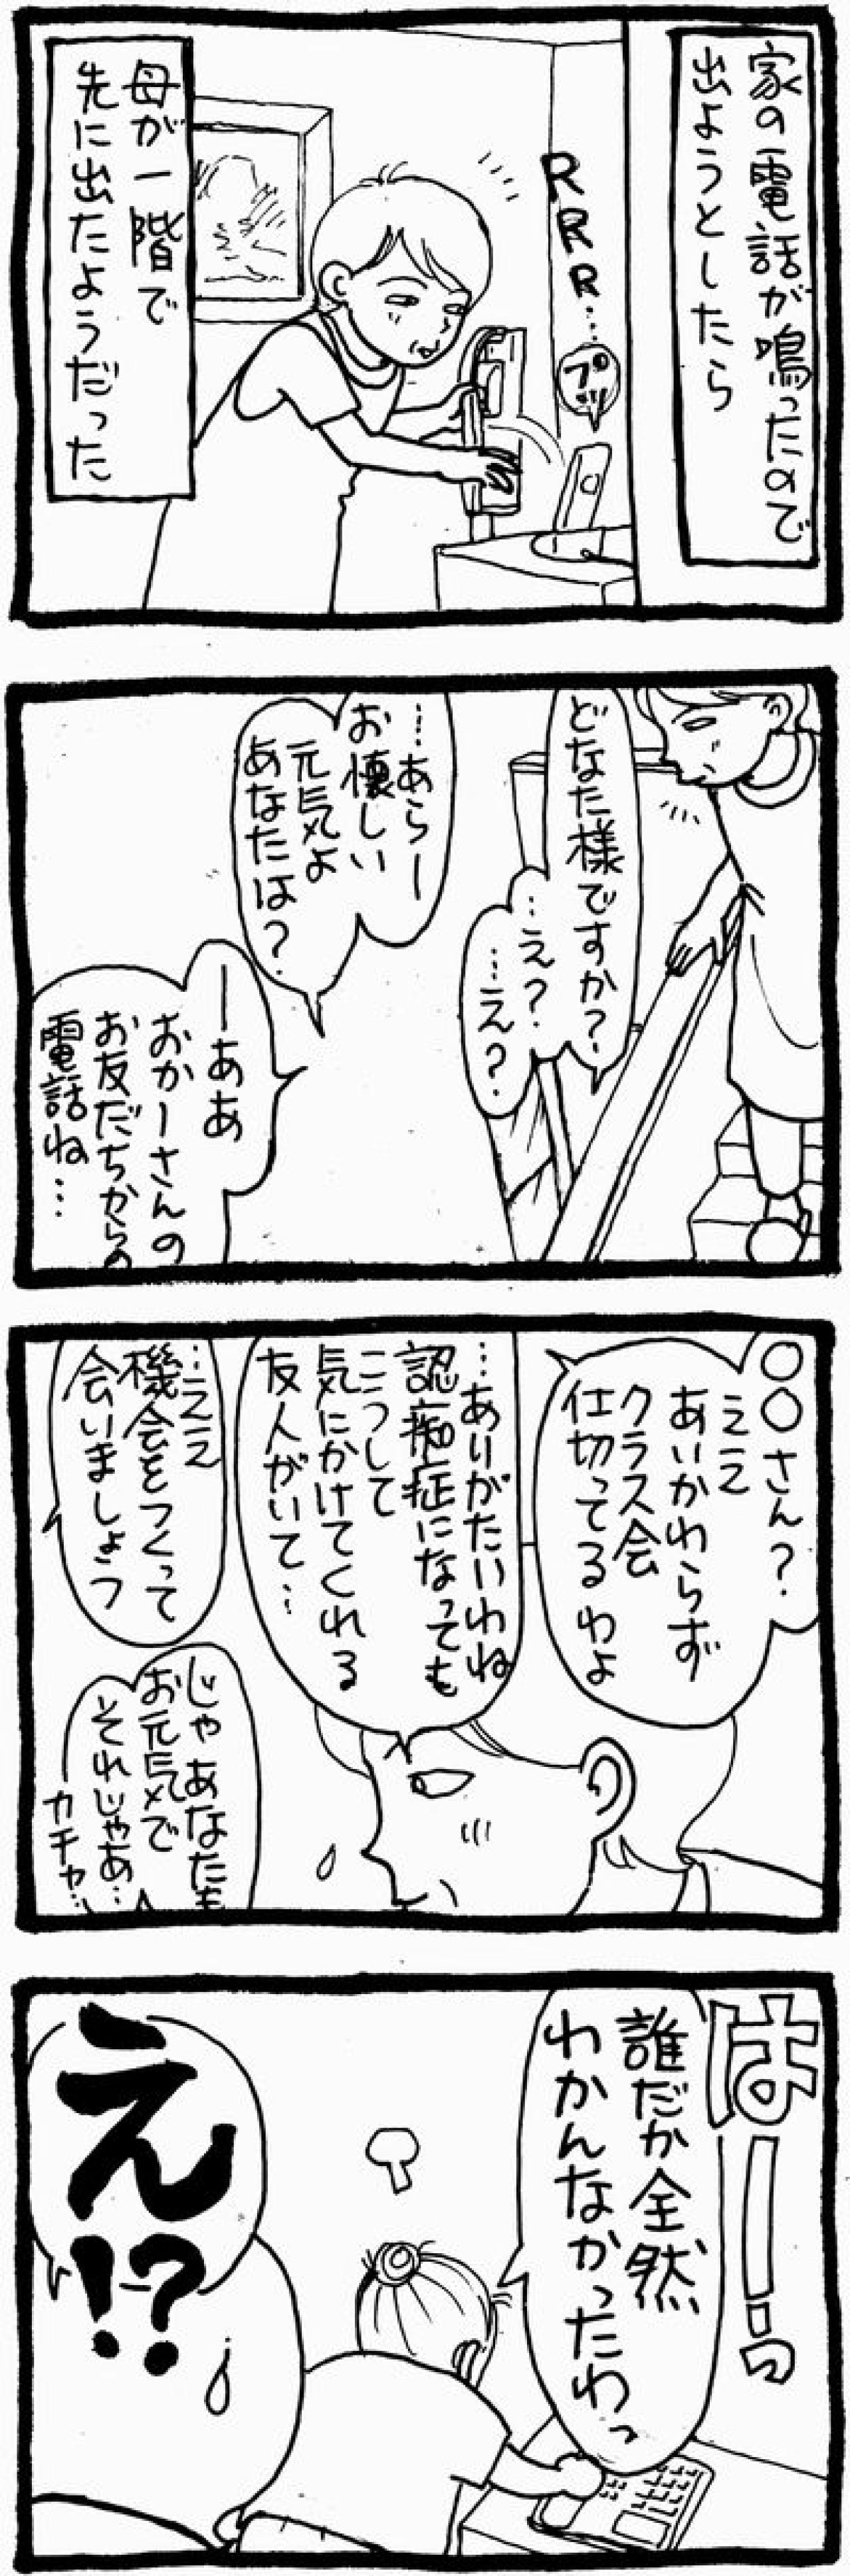 家の電話が鳴ったので
出ようとしたら
RRR…
プッ
母が一階で
先に出たようだった
どなた様ですか?
…え?
…え?
…あらー
お懐しい
元気よ
あなたは?
ーああ
おかーさんの
お友だちからの
電話ね…
〇〇さん?
ええ
あいかわらず
クラス会
仕切ってるわよ
…ありがたいわね
認痴症になっても
こうして
気にかけてくれる
友人がいて…
…ええ
機会をつくって
会いましょう
じゃあなたも
お元気で
それじゃあ…
ーカチャ…
はーーっ
誰だか全然
わかんなかったわっ
え!?